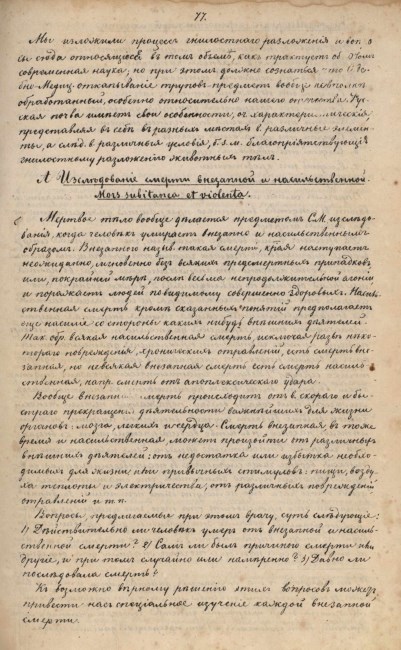 77.
Мы изложили процессъ гнилостнаго разложенія и вопро
сы сюда относящіеся въ томъ объемѣ, какъ трактуетъ объ этомъ
современная наука; но при этомъ должно сознаться – что Судеб
но Медиц. отпапываніе труповъ предметъ вообще не вполнѣ
обработанный, особенно относительно нашего отечества. Рус
ская почва имѣетъ свои особенности, ее характеризующія,
представляя въ себѣ въ разныхъ мѣстахъ и различные элемен
ты, а слѣд. и различныя условія, б. и. м. благопріятствующія
гнилостному разложенію животныхъ тѣлъ.
А Изслѣдованіе смерти внезапной и насильственной.
Mors subitanea et violenta.
Мертвое тѣло вообще дѣлается предметомъ С.М. изслѣдо
ванія, когда человѣкъ умираетъ внезапно и насильственнымъ
образомъ. Внезапною назыв. такая смерть, края наступаетъ
неожиданно, мгновенно безъ всякихъ предсмертныхъ припадковъ
или, покрайней мѣрѣ, послѣ весьма непродолжительной агоніи
и поражаетъ людей повидимому совершенно здоровыхъ. Насиль
ственная смерть кромѣ сказанныхъ понятій предполагаетъ
еще насиліе со стороны какихъ нибудь внѣшнихъ дѣятелей.
Так. обр. всякая насильственная смерть, исключая развѣ нѣко
тораго поврежденія, хроническихъ отравленій, есть смерть вне
запная, но не всякая внезапная смерть есть смерть насиль
ственная, напр. смерть отъ апоплексическаго удара.
Вообще внезапн. смерть происходитъ отъ скораго и бы
страго прекращенія дѣятельности важнѣйшихъ для жизни
органовъ: мозга, легкихъ и сердца. Смерть внезапная въ тоже
время и насильственная можетъ произойти отъ различныхъ
внѣшнихъ дѣятелей: отъ недостатка или избытка необхо
димыхъ для жизни или привычныхъ стимуловъ: пищи, возду
ха теплоты и электричества, отъ различныхъ поврежденій
отравленій и т п.
Вопросы, предлагаемые при этомъ врачу, суть слѣдующіе:
1) Дѣйствительно ли человѣкъ умеръ отъ внезапной и насиль
ственной смерти? 2) Самъ ли былъ причиною смерти или
другіе, и при томъ случайно или намѣренно? 3) Давно ли
послѣдовала смерть?
Къ возможно вѣрному рѣшенію этихъ вопросовъ можетъ
привести насъ спеціальное изученіе каждой внезапной
смерти.